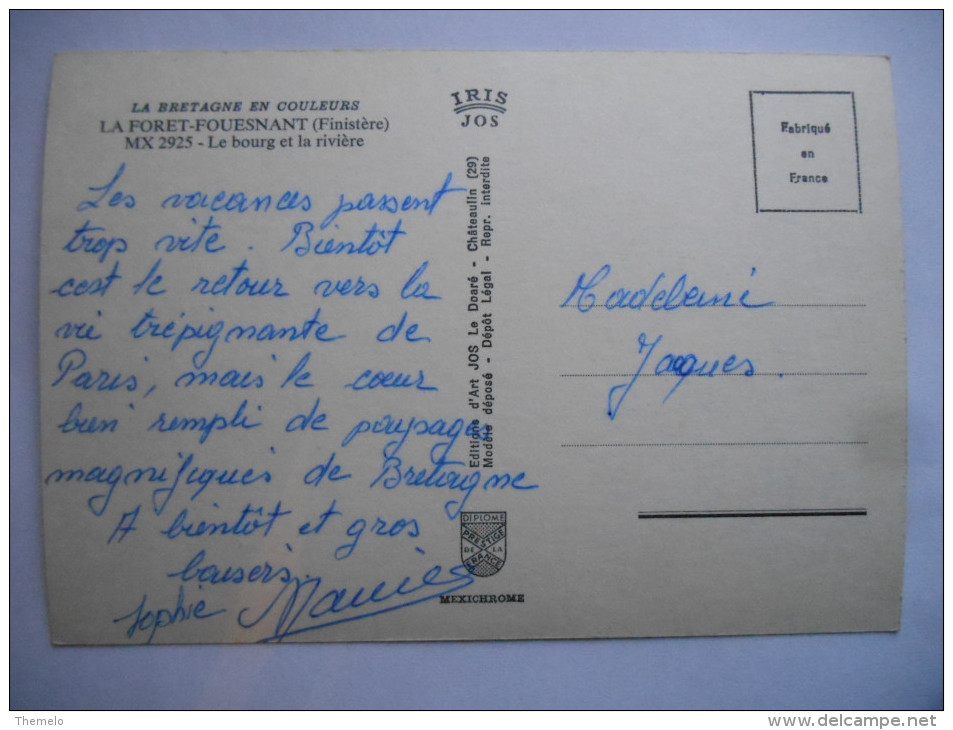 LA BRETAGNE EN COULEURS
LA FORET-FOUESNANT (Finistère)
MX 2925 - Le bourg et la rivière
Les vacances passent
trop vite. Bientôt
c'est le retour vers la
vie trépignante de
Paris, mais le cœur
bien rempli de paysages
magnifiques de Bretagne
A bientôt et gros
baisers.
Sophie
IRIS
JOS
Editions d'Art JOS Le Doaré - Châteaulin (29)
Modèle déposé - Dépôt Légal - Repr. interdite
DIPLOME
PRESTIGE
DE LA
FRANCE
MEXICHROME
Fabriqué
en
France
Madeleine
Jacques.
Themelo
www.delcampe.net